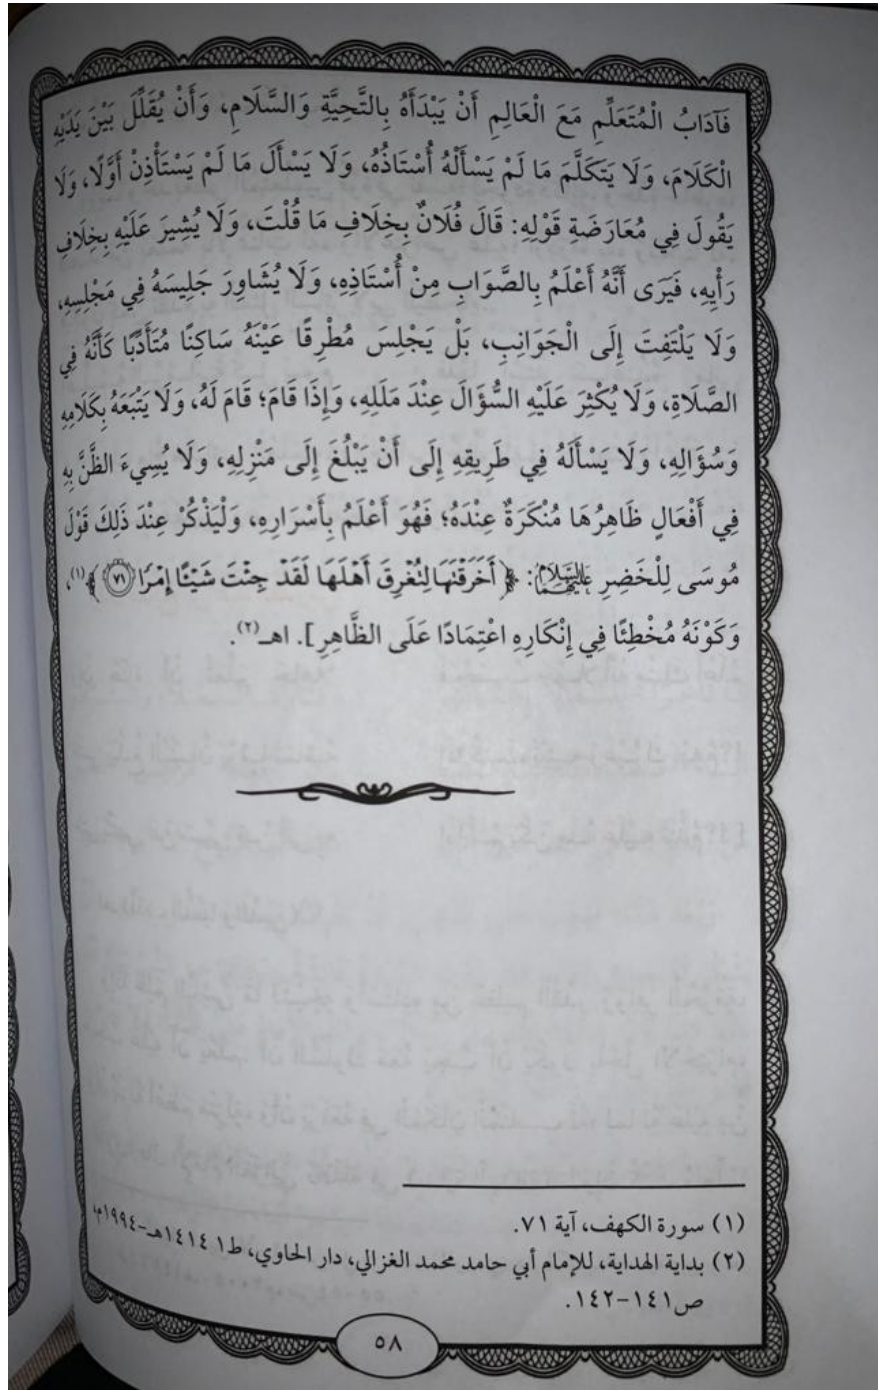 فَآدَابُ الْمُتَعَلِّمِ مَعَ الْعَالِمِ أَنْ يَبْدَأَهُ بِالتَّحِيَّةِ وَالسَّلَامِ، وَأَنْ يُقَلِّلَ بَيْنَ يَدَيْهِ
الْكَلَامَ، وَلَا يَتَكَلَّمَ مَا لَمْ يَسْأَلْهُ أُسْتَاذُهُ، وَلَا يَسْأَلَ مَا لَمْ يَسْتَأْذِنْ أَوَّلًا، وَلَا
يَقُولَ فِي مُعَارَضَةِ قَوْلِهِ: قَالَ فُلَانٌ بِخِلَافِ مَا قُلْتَ، وَلَا يُشِيرَ عَلَيْهِ بِخِلَافِ
رَأْيِهِ، فَيَرَى أَنَّهُ أَعْلَمُ بِالصَّوَابِ مِنْ أُسْتَاذِهِ، وَلَا يُشَاوِرَ جَلِيسَهُ فِي مَجْلِسِهِ،
وَلَا يَلْتَفِتَ إِلَى الْجَوَانِبِ، بَلْ يَجْلِسَ مُطْرِقًا عَيْنَهُ سَاكِنًا مُتَأَدِّبًا كَأَنَّهُ فِي
الصَّلَاةِ، وَلَا يُكْثِرَ عَلَيْهِ السُّؤَالَ عِنْدَ مَلَلِهِ، وَإِذَا قَامَ؛ قَامَ لَهُ، وَلَا يَتْبَعَهُ بِكَلَامِهِ
وَسُؤَالِهِ، وَلَا يَسْأَلَهُ فِي طَرِيقِهِ إِلَى أَنْ يَبْلُغَ إِلَى مَنْزِلِهِ، وَلَا يُسِيءَ الظَّنَّ بِهِ
فِي أَفْعَالٍ ظَاهِرُهَا مُنْكَرَةٌ عِنْدَهُ؛ فَهُوَ أَعْلَمُ بِأَسْرَارِهِ، وَلْيَذْكُرْ عِنْدَ ذَلِكَ قَوْلَ
مُوسَى لِلْخَضِرِ عَلَيْهِمَا السَّلَامُ: ﴿أَخَرَقْتَهَا لِتُغْرِقَ أَهْلَهَا لَقَدْ جِئْتَ شَيْئًا إِمْرًا ٧١﴾(١)،
وَكَوْنَهُ مُخْطِئًا فِي إِنْكَارِهِ اعْتِمَادًا عَلَى الظَّاهِرِ]. اهـ(٢).
(١) سورة الكهف، آية ٧١.
(٢) بداية الهداية، للإمام أبي حامد محمد الغزالي، دار الحاوي، ط١ ١٤١٤هـ-١٩٩٤م،
ص١٤١-١٤٢.
٥٨